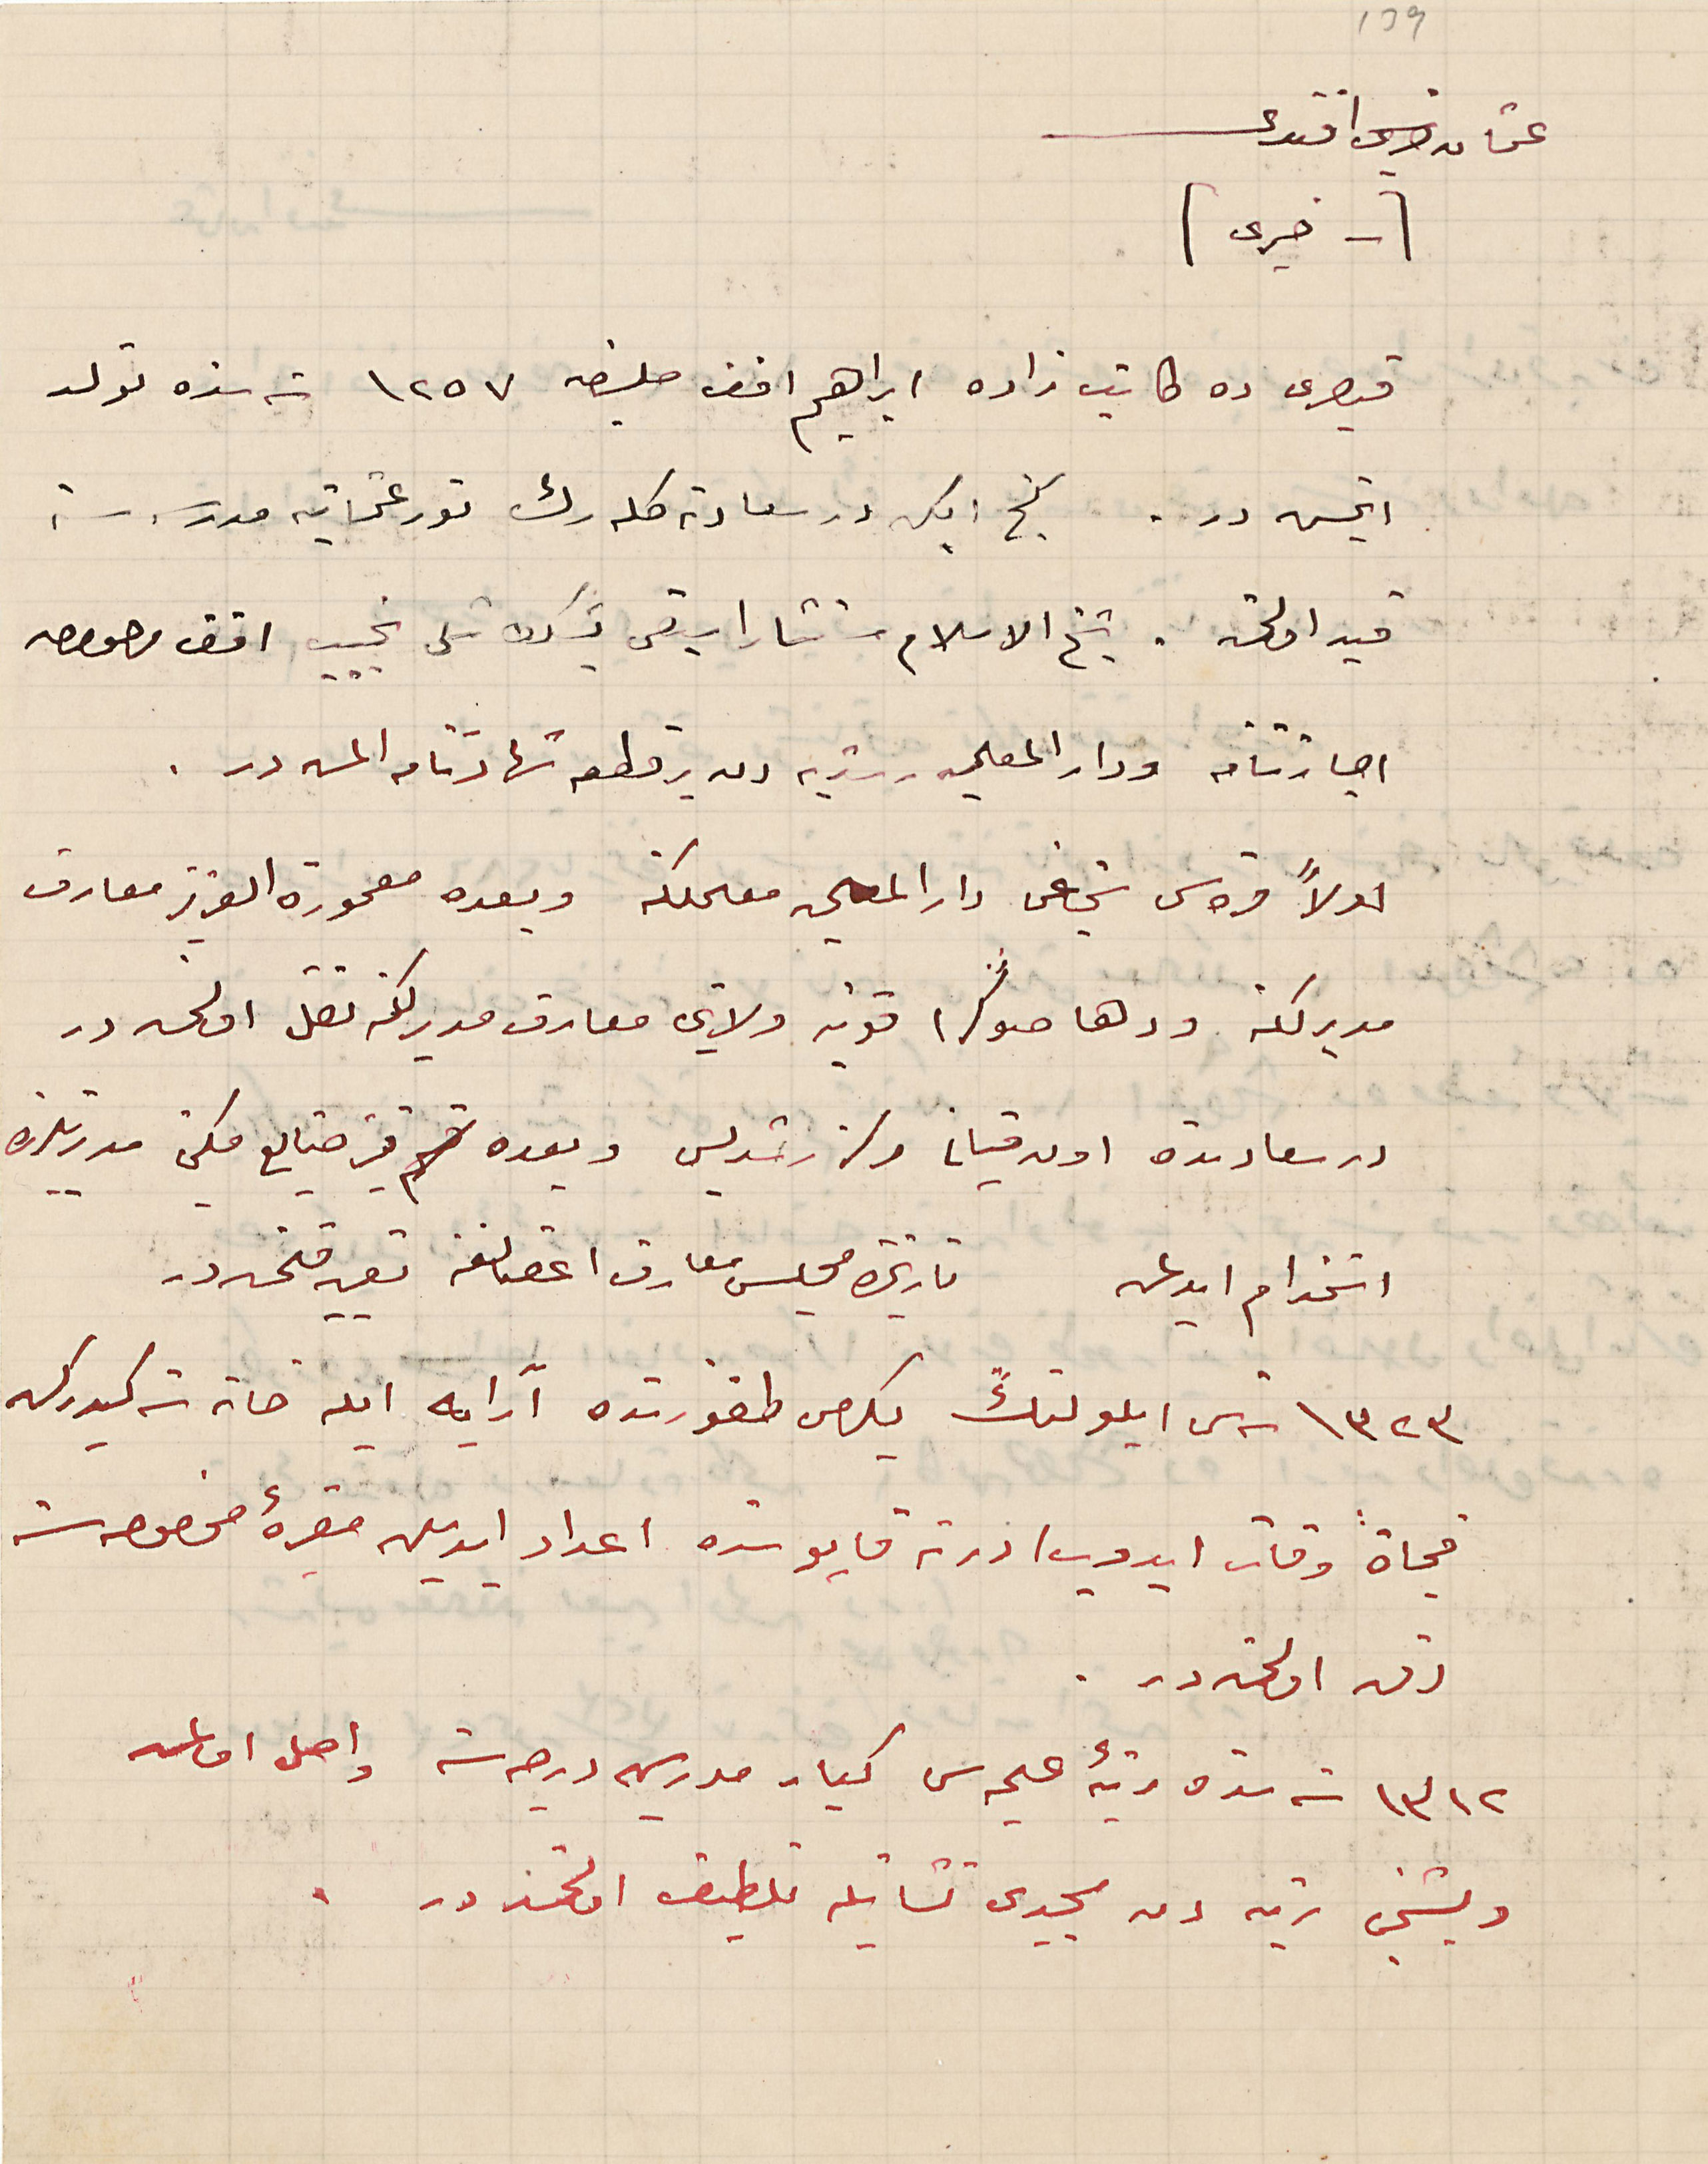 139
عثمان خیری افندی
[ــ خیری]
قیصری ده کاتب زاده ابراهیم افندی صلبندن ١٢٥٧ سنه سنده تولد
ایتمشدر . کنج ایکن درسعادته کله رك نور عثمانیه مدرسه سنه
قید اولنمش . شیخ الاسلام مستشار اسبقی نجیب افندی مرحومدن
اجازتنامه ودار المعلمین رشدیه دن بر قطعه شهادتنامه آلمشدر .
اولاً قره سی سنجاغی دار المعلمین معلملکنه وبعده معمورة العزیز معارف
مدیرلکنه ودها صوڭرا قونیه ولایتی معارف مدیرلکنه نقل اولنمشدر
درسعادتده اون قپانی مرکز رشدیه سی وبعده قیز صنایع مکتبی مدیرلکلرنده
استخدام ایدلمش تاریخنده مجلس معارف اعضالغنه تعیین قلنمشدر
١٣٢٣ سنه سی ایلولنك یکرمی طقوزنده آرابه ایله خانه سنه کیدرکن
فجاة وفات ایدوب ادرنه قاپوسنده اعداد ایدیلن مقبرۀ مخصوصه سنه
دفن اولنمشدر .
١٣١٢ سنه سنده رتبۀ علمیه سی کبار مدرسین درجه سنه واصل اولمش
وبشنجی رتبه دن مجیدی نشانیله تلطیف اولنمشدر .